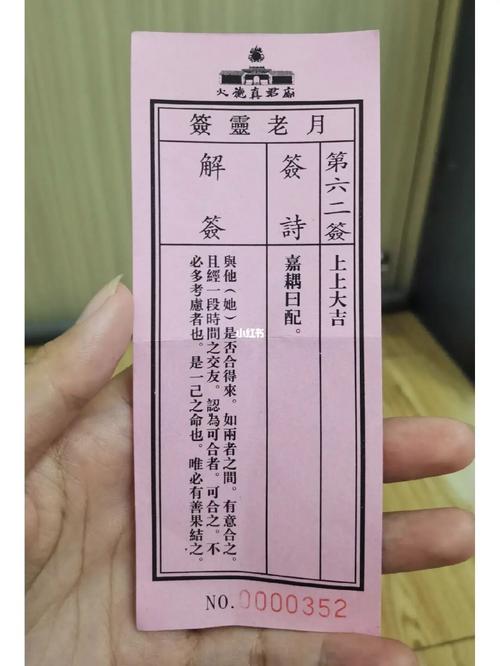 火龍真君廟
月老靈簽
第六二簽
上上大吉
簽詩
嘉耦曰配。
解簽
與他(她)是否合得來。如兩者之間。有意合之。
且經一段時間之交友。認為可合者。可合之。不
必多考慮者也。是一己之命也。唯必有善果結之。
小红书
NO.0000352